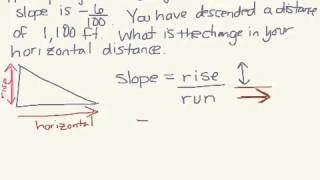 slope is -6/100. You have descended a distance
of 1,100 ft. What is the change in your
horizontal distance.
rise
horizontal
slope = rise/run